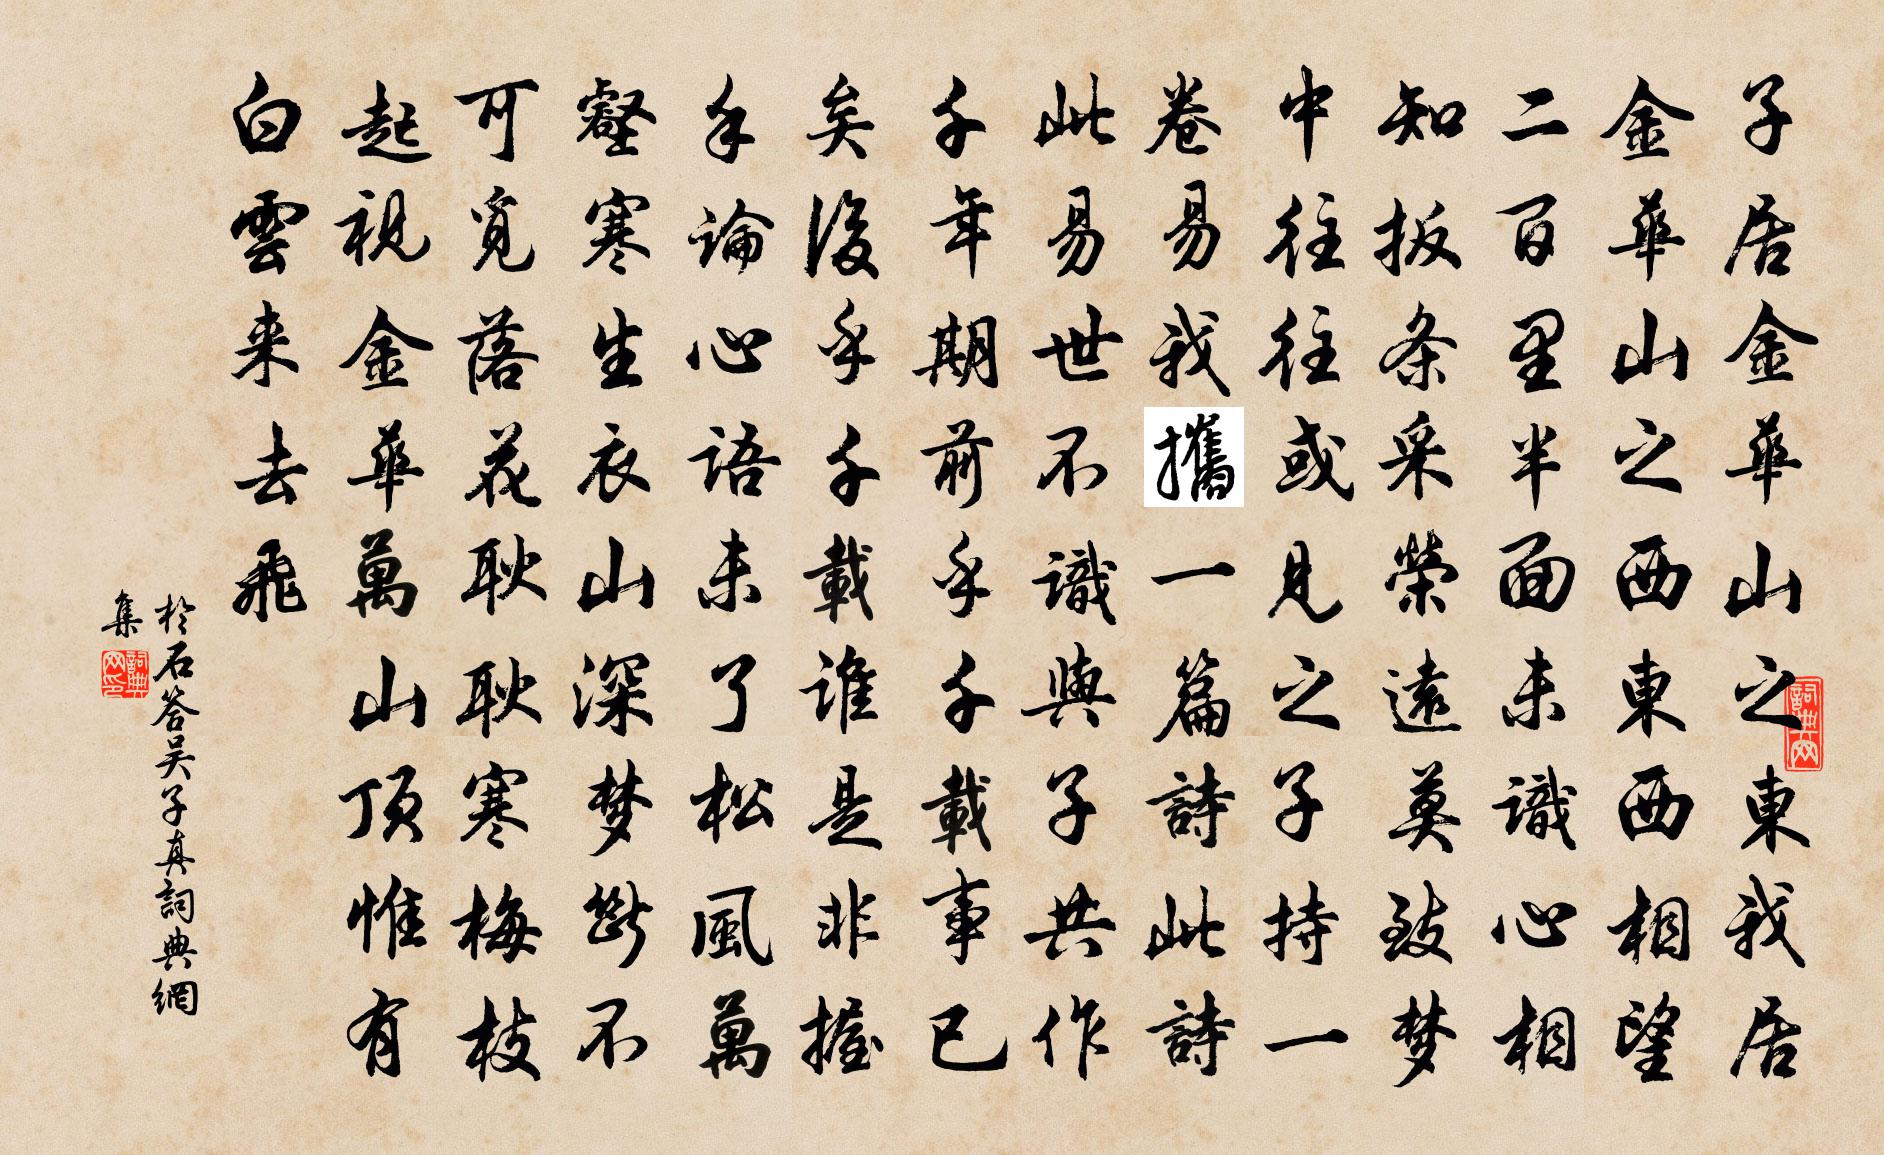 子居金華山之東我居
金華山之西東西相望
二百里半面未識心相
知扳条采榮遠莫致梦
中往往或見之子持一
卷易我攜一篇詩此詩
此易世不識與子共作
千年期前乎千載事已
矣後乎千載谁是非握
手論心語未了松風萬
壑寒生衣山深梦斷不
可覓落花耿耿寒梅枝
起視金華萬山頂惟有
白雲来去飛
於石答吴子真詞典網
集
詞典网
詞典网印